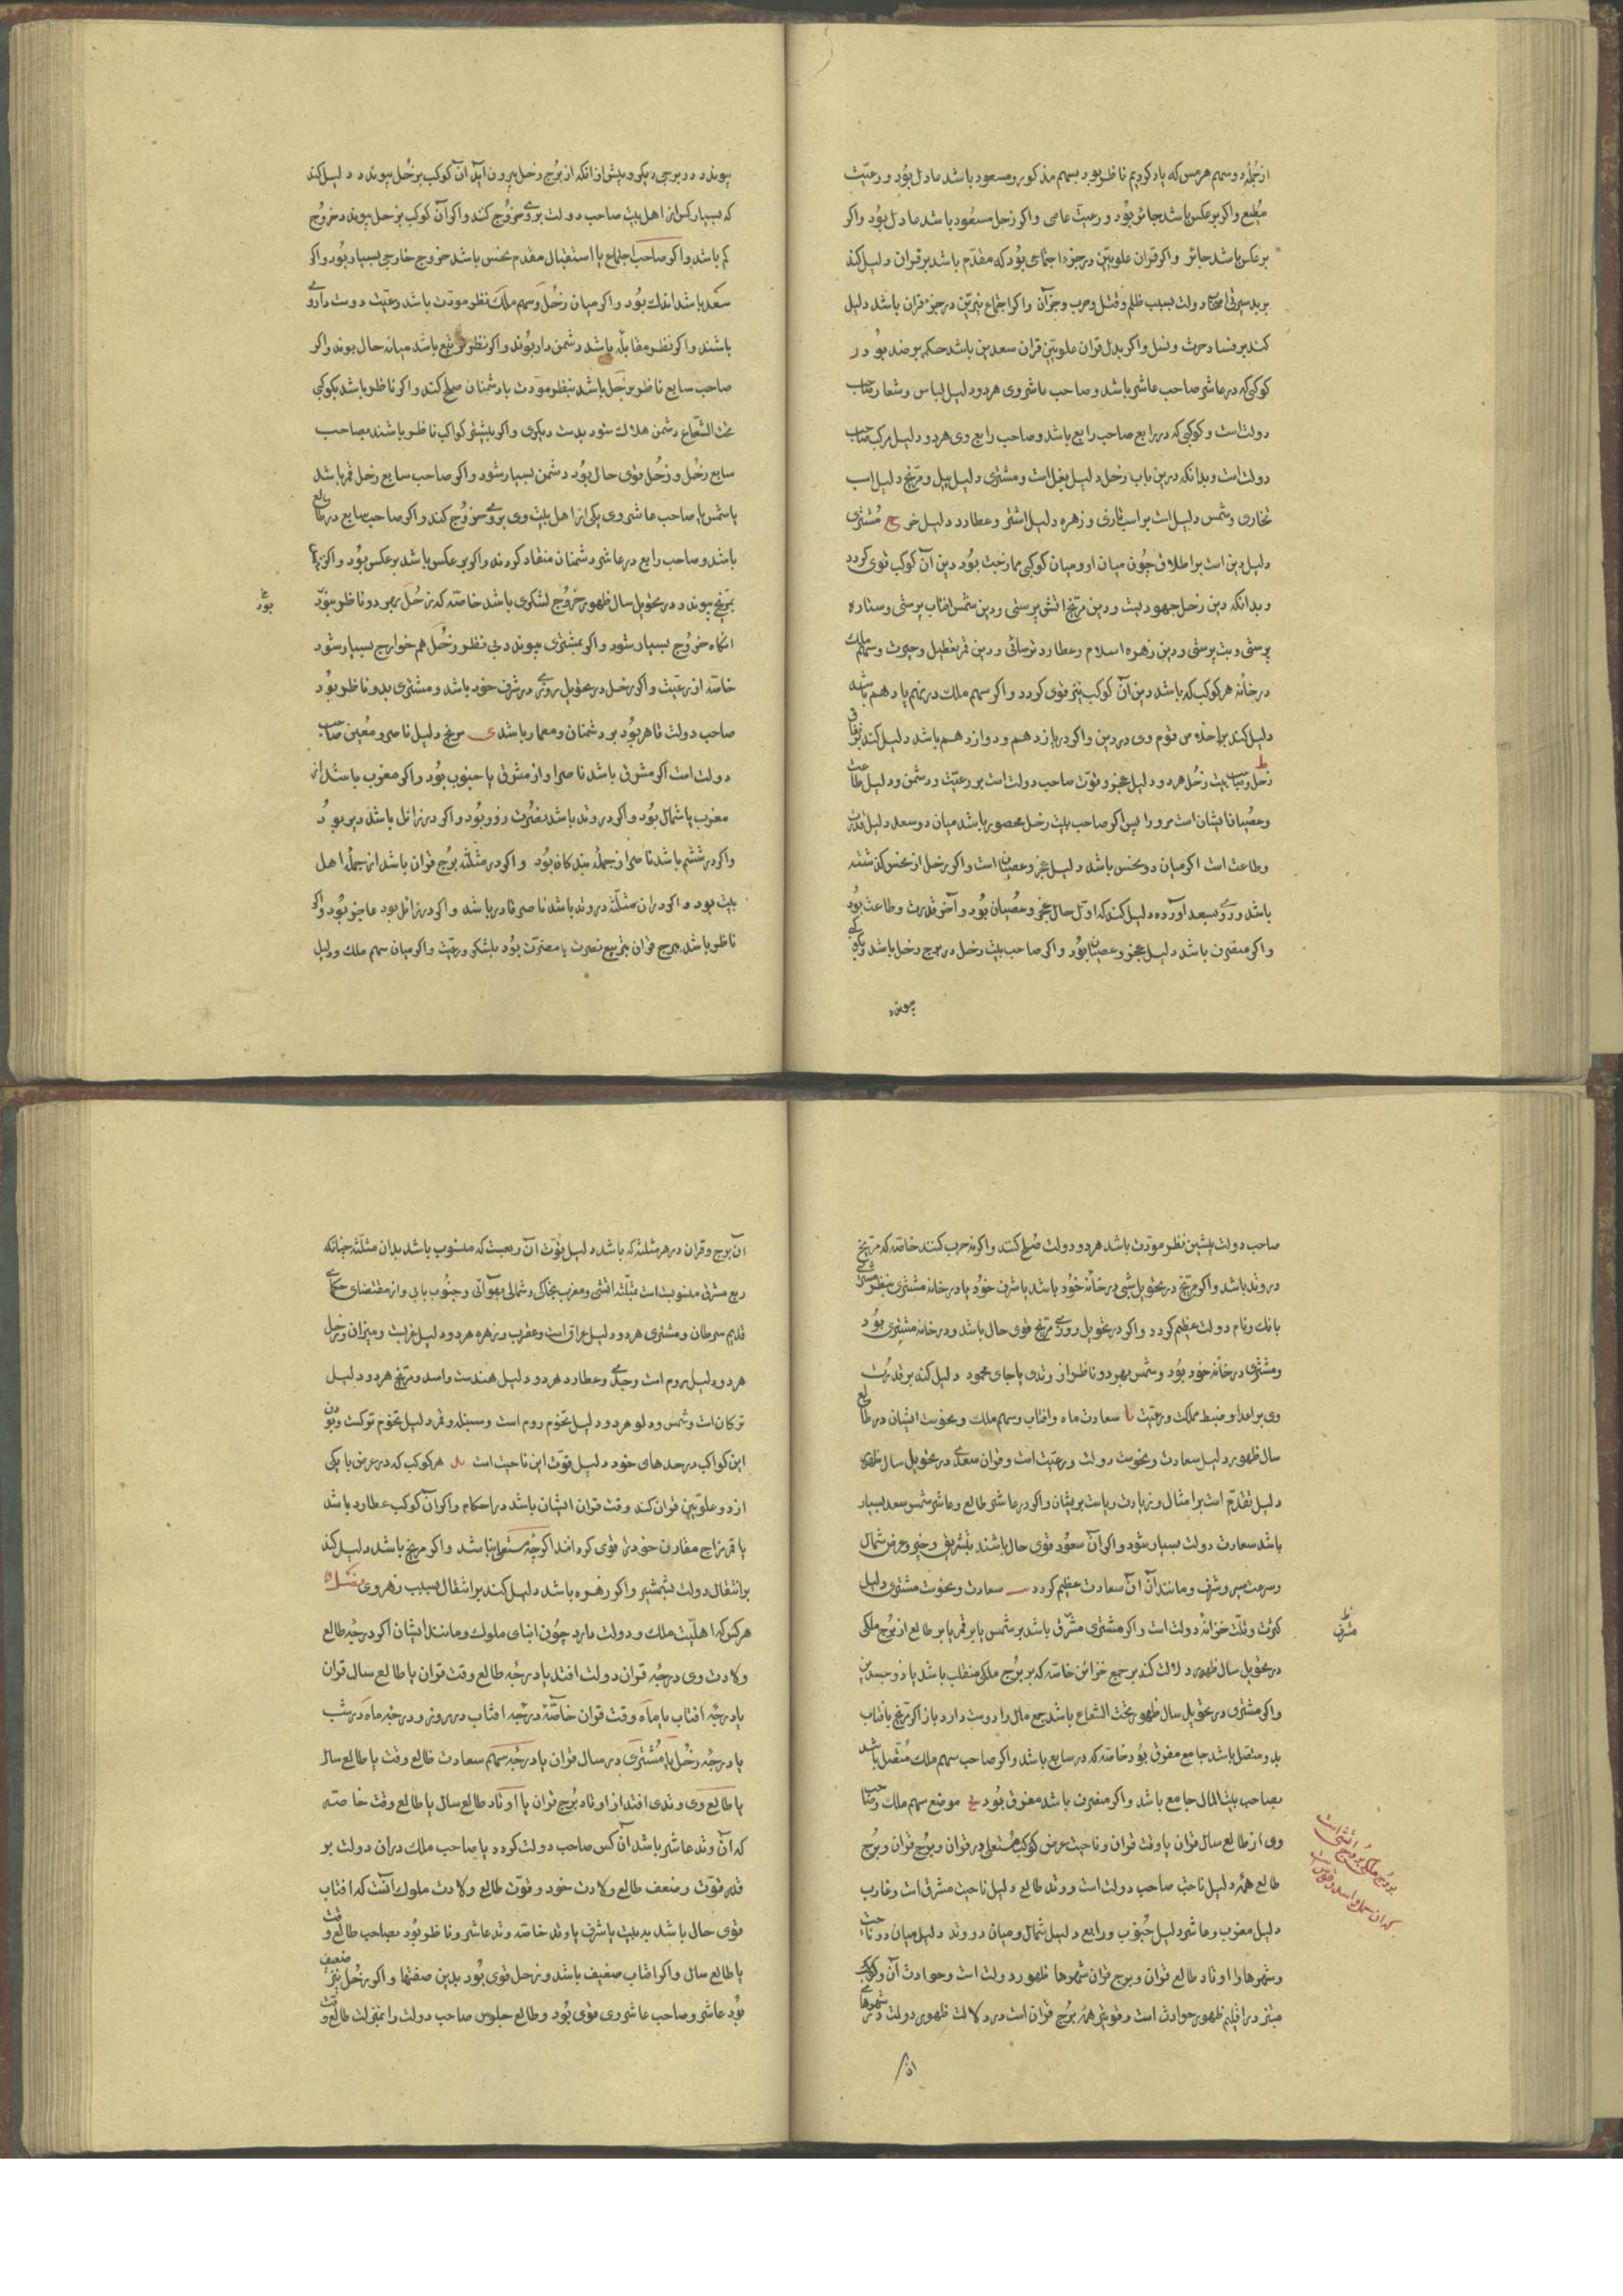 از جمله دو سهم هرمس که یاد کردیم ناظر بود بسهم مذکور و مسعود باشد عادل بود و رعیت
مطیع و اگر برعکس باشد جائر بود و رعیت عاصی و اگر زحل مسعود باشد عادل بود و اگر
برعکس باشد جائر و اگر قران علویین در جزء اجتماعی بود که مقدم باشد بر قران دلیل کند
بر بد سیرتی اصحاب دولت بسبب ظلم و قتل و حرب و جز آن و اگر اجتماع نیرین در جزء قران باشد دلیل
کند بر فساد حرث و نسل و اگر بدل قران علویین قران سعدین باشد حکم بر ضد بود ر
کوکبی که در عاشر صاحب عاشر باشد و صاحب عاشر وی هر دو دلیل لباس و شعار صاحب
دولت است و کوکبی که در رابع صاحب رابع باشد و صاحب رابع وی هر دو دلیل مرکب صاحب
دولت است و بدانکه درین باب زحل دلیل بغل است و مشتری دلیل پیل و مریخ دلیل اسب
بخاری و شمس دلیل است بر اسب تازی و زهره دلیل اشتر و عطارد دلیل خر ح مشتری
دلیل دین است بر اطلاق چون میان او و میان کوکبی ممازجت بود دین آن کوکب قوی گردد
و بدانکه دین زحل جهودیت و دین مریخ آتش پرستی و دین شمس آفتاب پرستی و ستاره
پرستی و بت پرستی و دین زهره اسلام و عطارد ترسائی و دین قمر تعطیل و حیرت و سهم ملک
در خانه هر کوکب که باشد دین آن کوکب نیز قوی گردد و اگر سهم ملک در نهم یا دهم باشد
دلیل کند بر اخلاص قوم وی در دین و اگر در یازدهم و دوازدهم باشد دلیل کند بر نفاق
ط زحل و صاحب بیت زحل هر دو دلیل عجز و قوت صاحب دولت است بر رعیت و دشمن و دلیل طاعت
و عصیان ایشان است مر و را پس اگر صاحب بیت زحل محصور باشد میان دو سعد دلیل قدرت
و طاعت است اگر میان دو نحس باشد دلیل عجز و عصیان است و اگر زحل از نحس گذشته
باشد و روی بسعد آورده دلیل کند که اول حال عجز و عصیان بود و آخر قدرت و طاعت بود
و اگر منصرف باشد دلیل عجز و عصیان بود و اگر صاحب بیت زحل در برج زحل باشد و بکوکبی
پیوندد
پیوندد در برجی دیگر و پیش از انکه از برج زحل بیرون آید آن کوکب بزحل پیوندد دلیل کند
که بسیار کس از اهل بیت صاحب دولت بروی خروج کند و اگر آن کوکب بزحل پیوندد خروج
کم باشد و اگر صاحب اجتماع یا استقبال مقدم نحس باشد خروج خارجی بسیار بود و اگر
سعد باشد اندک بود و اگر میان زحل و سهم ملک نظر مودت باشد رعیت دوست دار وی
باشند و اگر نظر مقابله باشد دشمن دار بوند و اگر نظر تربیع باشد میانه حال بوند و اگر
صاحب سابع ناظر بزحل باشد بنظر مودت با دشمنان صلح کند و اگر ناظر باشد بکوکبی
تحت الشعاع دشمن هلاک شود بدست دیگری و اگر بیشتر کواکب ناظر باشند بصاحب
سابع زحل و زحل قوی حال بود دشمن بسیار شود و اگر صاحب سابع زحل قمر باشد
یا شمس یا صاحب عاشر وی یکی از اهل بیت وی بروی خروج کند و اگر صاحب سابع در طالع
باشد و صاحب رابع در عاشر دشمنان منقاد گردند و اگر برعکس باشد برعکس بود و اگر
بمریخ پیوندد در تحویل سال ظهور خروج لشکری باشد خاصه که زحل بهر دو ناظر بود
بود
انگاه خروج بسیار شود و اگر بمشتری پیوندد بی نظر زحل هم خوارج بسیار شود
خاصه از رعیت و اگر زحل در تحویل روزی در شرف خود باشد و مشتری بدو ناظر بود
صاحب دولت قاهر بود بر دشمنان و معمار باشد ی مریخ دلیل ناصر و معین صاحب
دولت است اگر مشرقی باشد ناصر او از مشرق یا جنوب بود و اگر مغرب باشد از
مغرب یا شمال بود و اگر در وتد باشد نصرت زود بود و اگر در زائل باشد دیر بود
و اگر در ششم باشد ناصر از جمله بندگان بود و اگر در مثلثه برج قران باشد از جمله اهل
بیت بود و اگر در ان مثلثه در وتد باشد ناصر قادر باشد و اگر در زائل بود عاجز بود و اگر
ناظر باشد ببرج قران بتربیع نصرت یا مضرت بود بلشکر و رعیت و اگر میان سهم ملک و دلیل
صاحب دولت پیشین نظر مودت باشد هر دو دولت صلح کنند و اگر نه حرب کنند خاصه که مریخ
در وتد باشد و اگر مریخ در تحویل شبی در خانه خود باشد یا شرف خود یا در خانه مشتری بنظر مشتری
بانک و نام دولت عظیم گردد و اگر در تحویل روزی مریخ قوی حال باشد و در خانه مشتری بود
و مشتری در خانه خود بود و شمس بهر دو ناظر از وتدی یا جای محمود دلیل کند بر قدرت
وی بر اعدا و ضبط مملکت و رعیت یا سعادت ماه و آفتاب و سهم ملک و نحوست ایشان در طالع
سال ظهور دلیل سعادت و نحوست دولت و رعیت است و قران سعدی در تحویل سال ظهور
دلیل تقدم است بر امثال و زیادت ریاست بریشان و اگر در عاشر طالع و عاشر شمس سعد بسیار
باشد سعادت دولت بسیار شود و اگر آن سعود قوی حال باشند بتشریق و حیز و عرض شمال
و سرعت سیر و شرف و مانند آن آن سعادت عظیم گردد یب سعادت و نحوست مشتری دلیل
کثرت و قلت خزانه دولت است و اگر مشتری مشرق باشد بر شمس یا بر قمر یا بر طالع از برج ملکی
مشرف
در تحویل سال ظهور دلالت کند بر جمع خزائن خاصه که بر برج ملکی منقلب باشد یا ذو جسدین
و اگر مشتری در تحویل سال ظهور تحت الشعاع باشد جمع مال را دوست دارد باز اگر مریخ بافتاب
بدو متصل باشد جامع مفرق بود خاصه که در سابع باشد و اگر صاحب سهم ملک متصل باشد
بصاحب بیت المال جامع باشد و اگر منصرف باشد مفرق بود یج موضع سهم ملک و صاحب
وی از طالع سال قران یا وقت قران و ناحیت عرض کوکب مستعلی در قران و برج قران و برج
بروج ملکی بروج آتشی است
که ان حمل و اسد و قوس است
طالع همه دلیل ناحیت صاحب دولت است و وتد طالع دلیل ناحیت مشرق است و غارب
دلیل مغرب و عاشر دلیل جنوب و رابع دلیل شمال و میان دو وتد دلیل میان دو ناحیت
و شهرها را اوتاد طالع قران و برج قران شهرها ظهور دولت است و حوادث آن و کوکب
مبتز در اقلیم ظهور حوادث است و قویتر همه برج قران است در دلالت ظهور دولت در شهرهای
ان
آن برج و قران در هر مثلثه که باشد دلیل قوت آن ربعست که منسوب باشد بدان مثلثه چنانکه
ربع مشرقی منسوبست بمثلثه آتشی و مغرب بخاکی و شمالی بهوائی و جنوب بابی و از مقتضای حکمای
قدیم سرطان و مشتری هر دو دلیل عراق است و عقرب و زهره هر دو دلیل عربست و میزان و زحل
هر دو دلیل روم است و جدی و عطارد هر دو دلیل هندست و اسد و مریخ هر دو دلیل
ترکان است و شمس و دلو هر دو دلیل تخوم روم است و سنبله و قمر دلیل تخوم ترکست و بودن
این کواکب در حدهای خود دلیل قوت این ناحیت است ید هر کوکب که در عرض با یکی
از دو علویین قران کند وقت قران ایشان باشد در احکام و اگر آن کوکب عطارد باشد
یا قمر مزاج مقارن خود را قوی کرده اند اگر چه مستعلی نباشد و اگر مریخ باشد دلیل کند
بر انتقال دولت بشمشیر و اگر زهره باشد دلیل کند بر انتقال بسبب زهر وی
هر کس که اهلیت ملک و دولت دارد چون ابنای ملوک و مانند ایشان اگر درجه طالع
ولادت وی درجه قران دولت افتد یا درجه طالع وقت قران یا طالع سال قران
یا درجه آفتاب یا ماه وقت قران خاصه درجه آفتاب در روز و درجه ماه در شب
یا درجه زحل یا مشتری در سال قران یا درجه سهم سعادت طالع وقت یا طالع سال
یا طالع وی وتدی افتد از اوتاد برج قران یا اوتاد طالع سال یا طالع وقت خاصه
که آن وتد عاشر باشد آن کس صاحب دولت گردد یا صاحب ملک در ان دولت بر
قدر قوت و ضعف طالع ولادت خود و قوت طالع ولادت ملوک آنست که آفتاب
قوی حال باشد ببیت یا شرف یا وتد خاصه وتد عاشر و ناظر بود بصاحب طالع وقت
یا طالع سال و اگر آفتاب ضعیف باشد و زحل قوی بود بدین صفتها و اگر زحل نیز ضعیف
بود عاشر و صاحب عاشر وی قوی بود و طالع جلوس صاحب دولت را بمنزلت طالع وقت